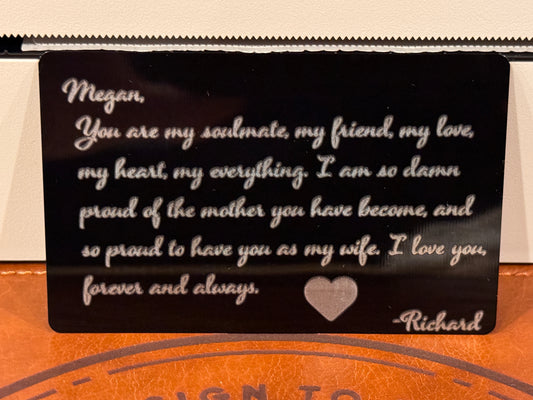 Megan,
You are my soulmate, my friend, my love,
my heart, my everything. I am so damn
proud of the mother you have become, and
so proud to have you as my wife. I love you,
forever and always.
-Richard
SIGN TO